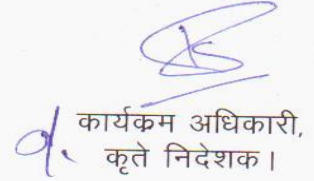 कार्यक्रम अधिकारी,
कृते निदेशक।